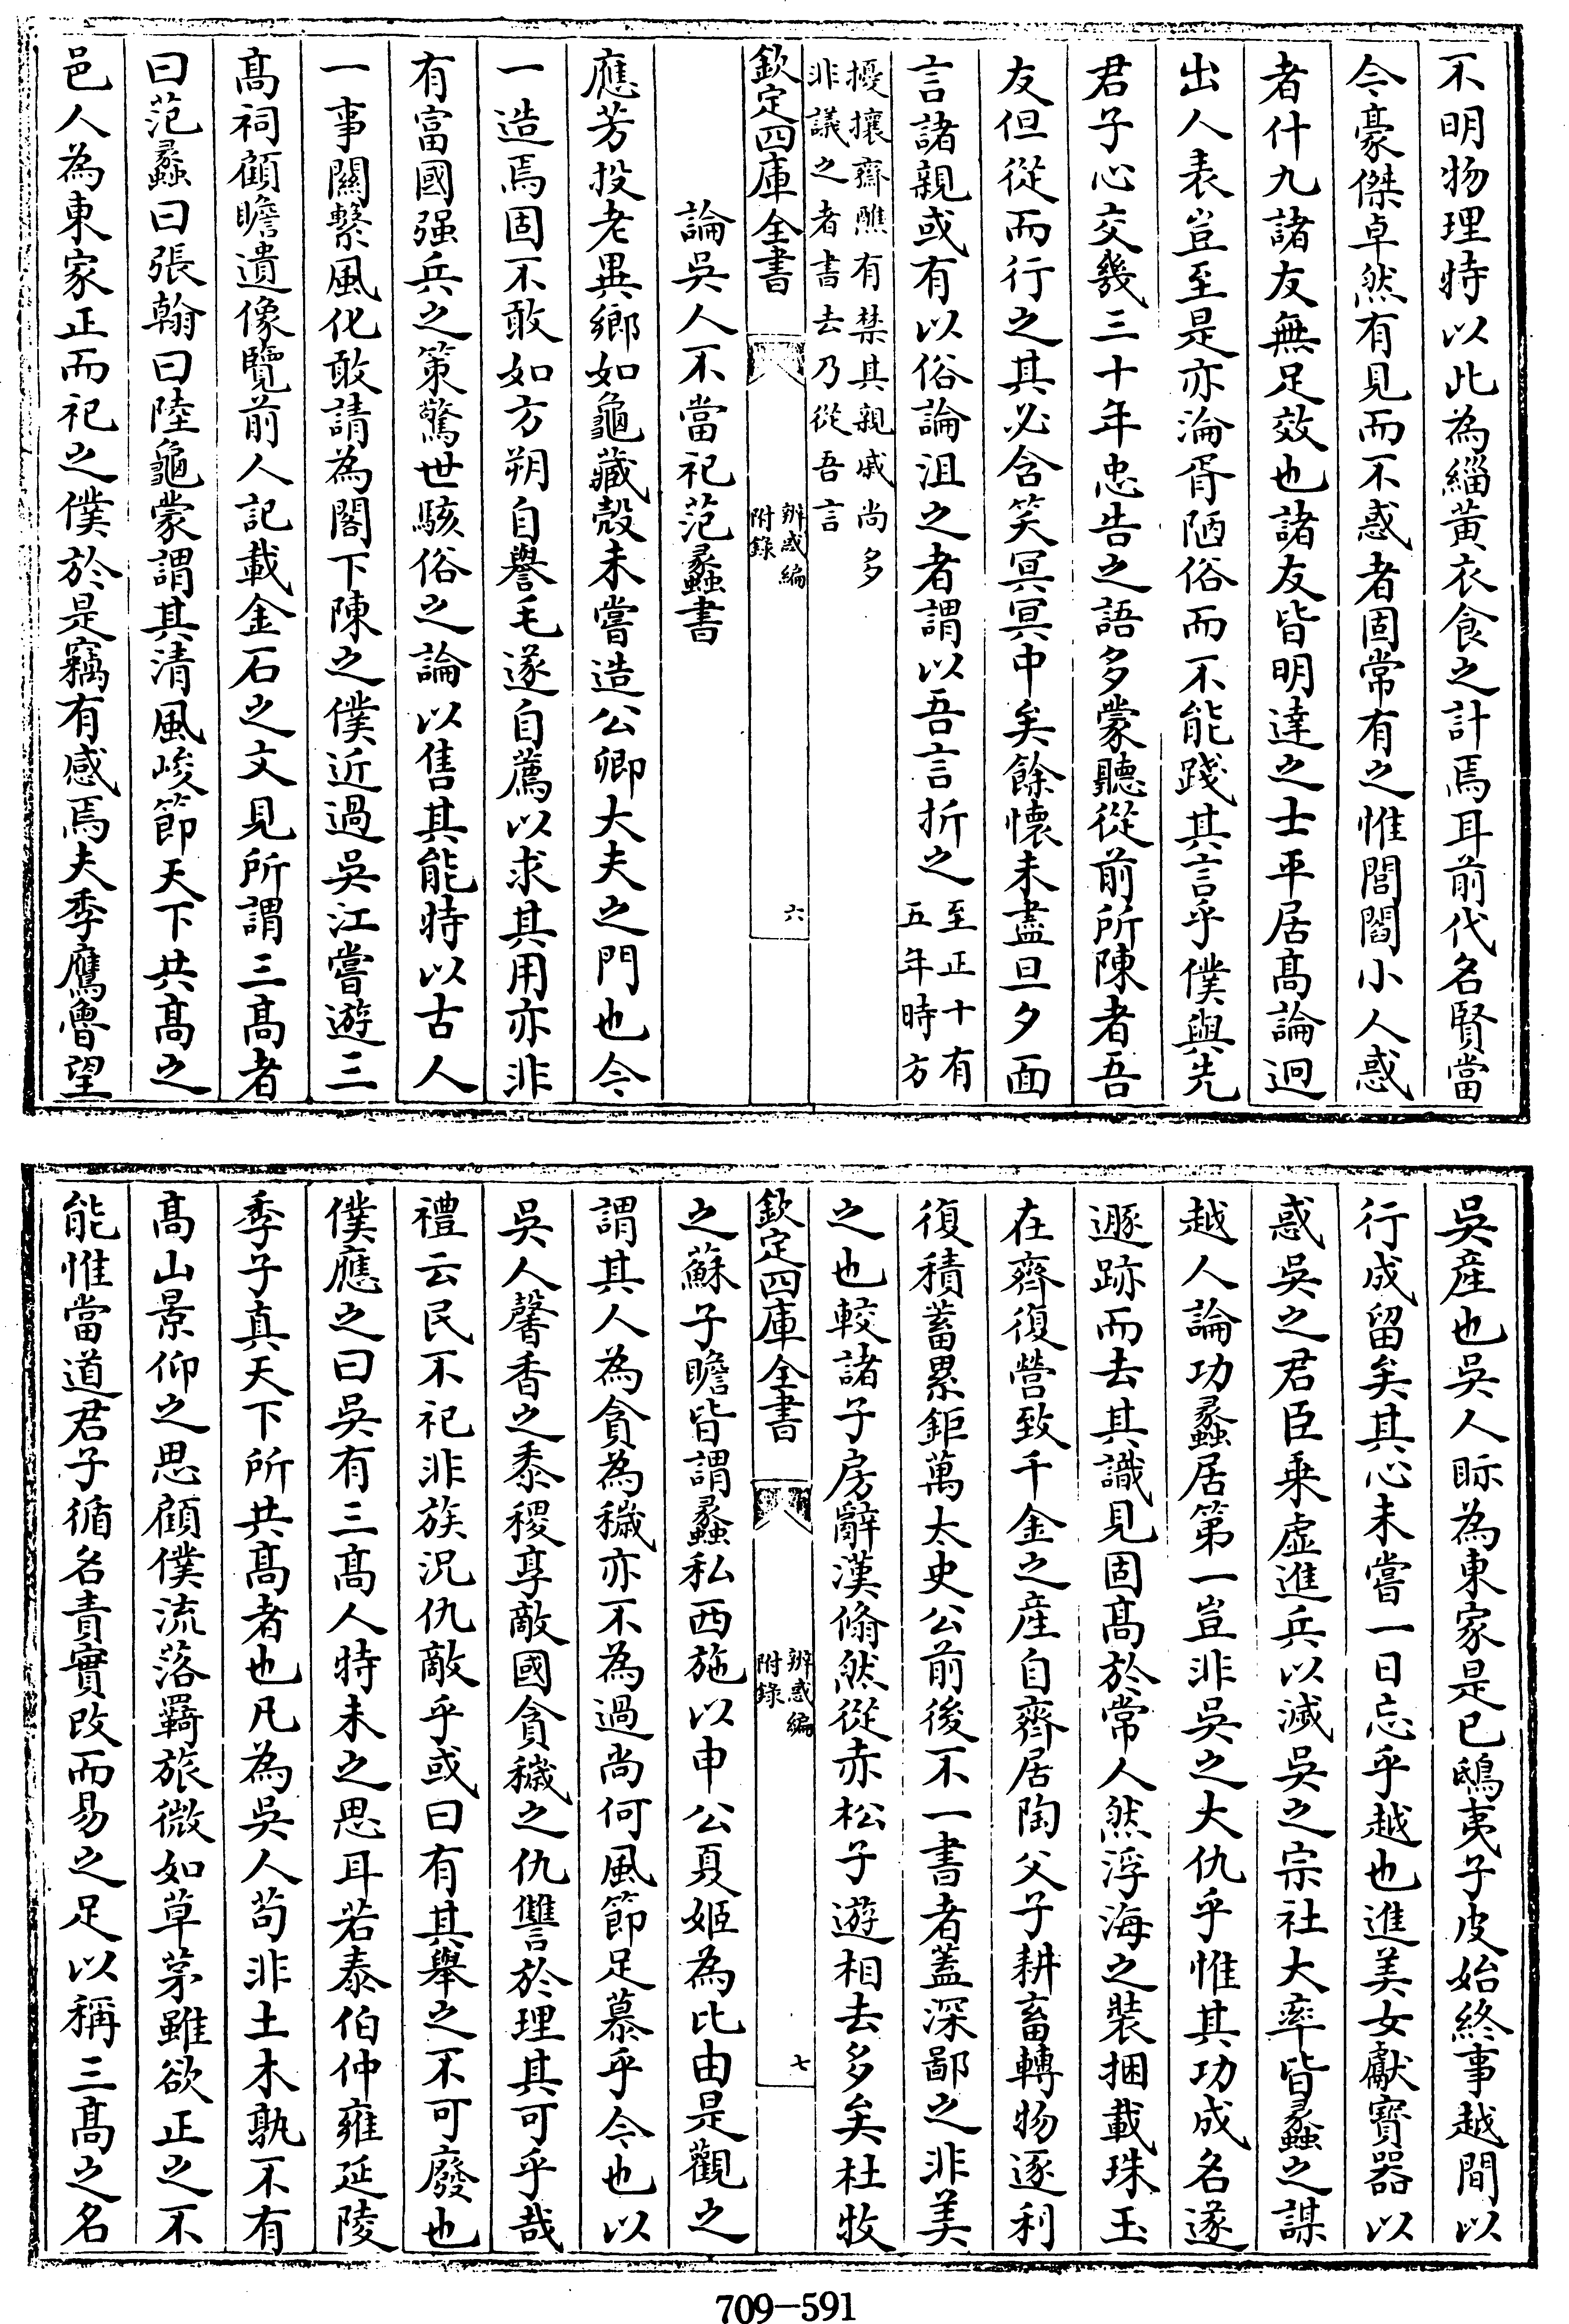 不明物理特以此為緇黄衣食之計焉耳前代名賢當
今豪傑卓然有見而不惑者固常有之惟閭閻小人惑
者什九諸友無足效也諸友皆明達之士平居髙論迥
出人表豈至是亦淪胥陋俗而不能踐其言乎僕與先
君子心交幾三十年忠告之語多蒙聽從前所陳者吾
友但從而行之其必含笑冥冥中矣餘懷未盡旦夕面
言諸親或有以俗論沮之者謂以吾言折之至正十有
五年時方
擾攘齋醮有禁其親戚尚多
非議之者書去乃從吾言
欽定四庫全書
辨惑編
附錄
六
論吳人不當祀范蠡書
應芳投老異鄉如龜藏殼未嘗造公卿大夫之門也今
一造焉固不敢如方朔自譽毛遂自薦以求其用亦非
有富國强兵之策驚世駭俗之論以售其能特以古人
一事關繫風化敢請為閤下陳之僕近過吳江嘗遊三
髙祠顧瞻遺像覽前人記載金石之文見所謂三髙者
曰范蠡曰張翰曰陸龜蒙謂其清風峻節天下共髙之
邑人為東家正而祀之僕於是竊有感焉夫季鷹魯望
吳産也吳人眎為東家是已鴟夷子皮始終事越間以
行成留矣其心未嘗一日忘乎越也進美女獻寳器以
惑吳之君臣乗虛進兵以滅吳之宗社大率皆蠡之謀
越人論功蠡居第一豈非吳之大仇乎惟其功成名遂
遯跡而去其識見固髙於常人然浮海之裝捆載珠玉
在齊復營致千金之産自齊居陶父子耕畜轉物逐利
復積蓄累鉅萬太史公前後不一書者蓋深鄙之非美
之也較諸子房辭漢翛然從赤松子遊相去多矣杜牧
欽定四庫全書
辨惑編
附錄
七
之蘇子瞻皆謂蠡私西施以申公夏姬為比由是觀之
謂其人為貪為穢亦不為過尚何風節足慕乎今也以
吳人馨香之黍稷享敵國貪穢之仇讐於理其可乎哉
禮云民不祀非族況仇敵乎或曰有其舉之不可廢也
僕應之曰吳有三髙人特未之思耳若泰伯仲雍延陵
季子真天下所共髙者也凡為吳人茍非土木孰不有
髙山景仰之思顧僕流落羇旅微如草茅雖欲正之不
能惟當道君子循名責實改而易之足以稱三髙之名
709-591